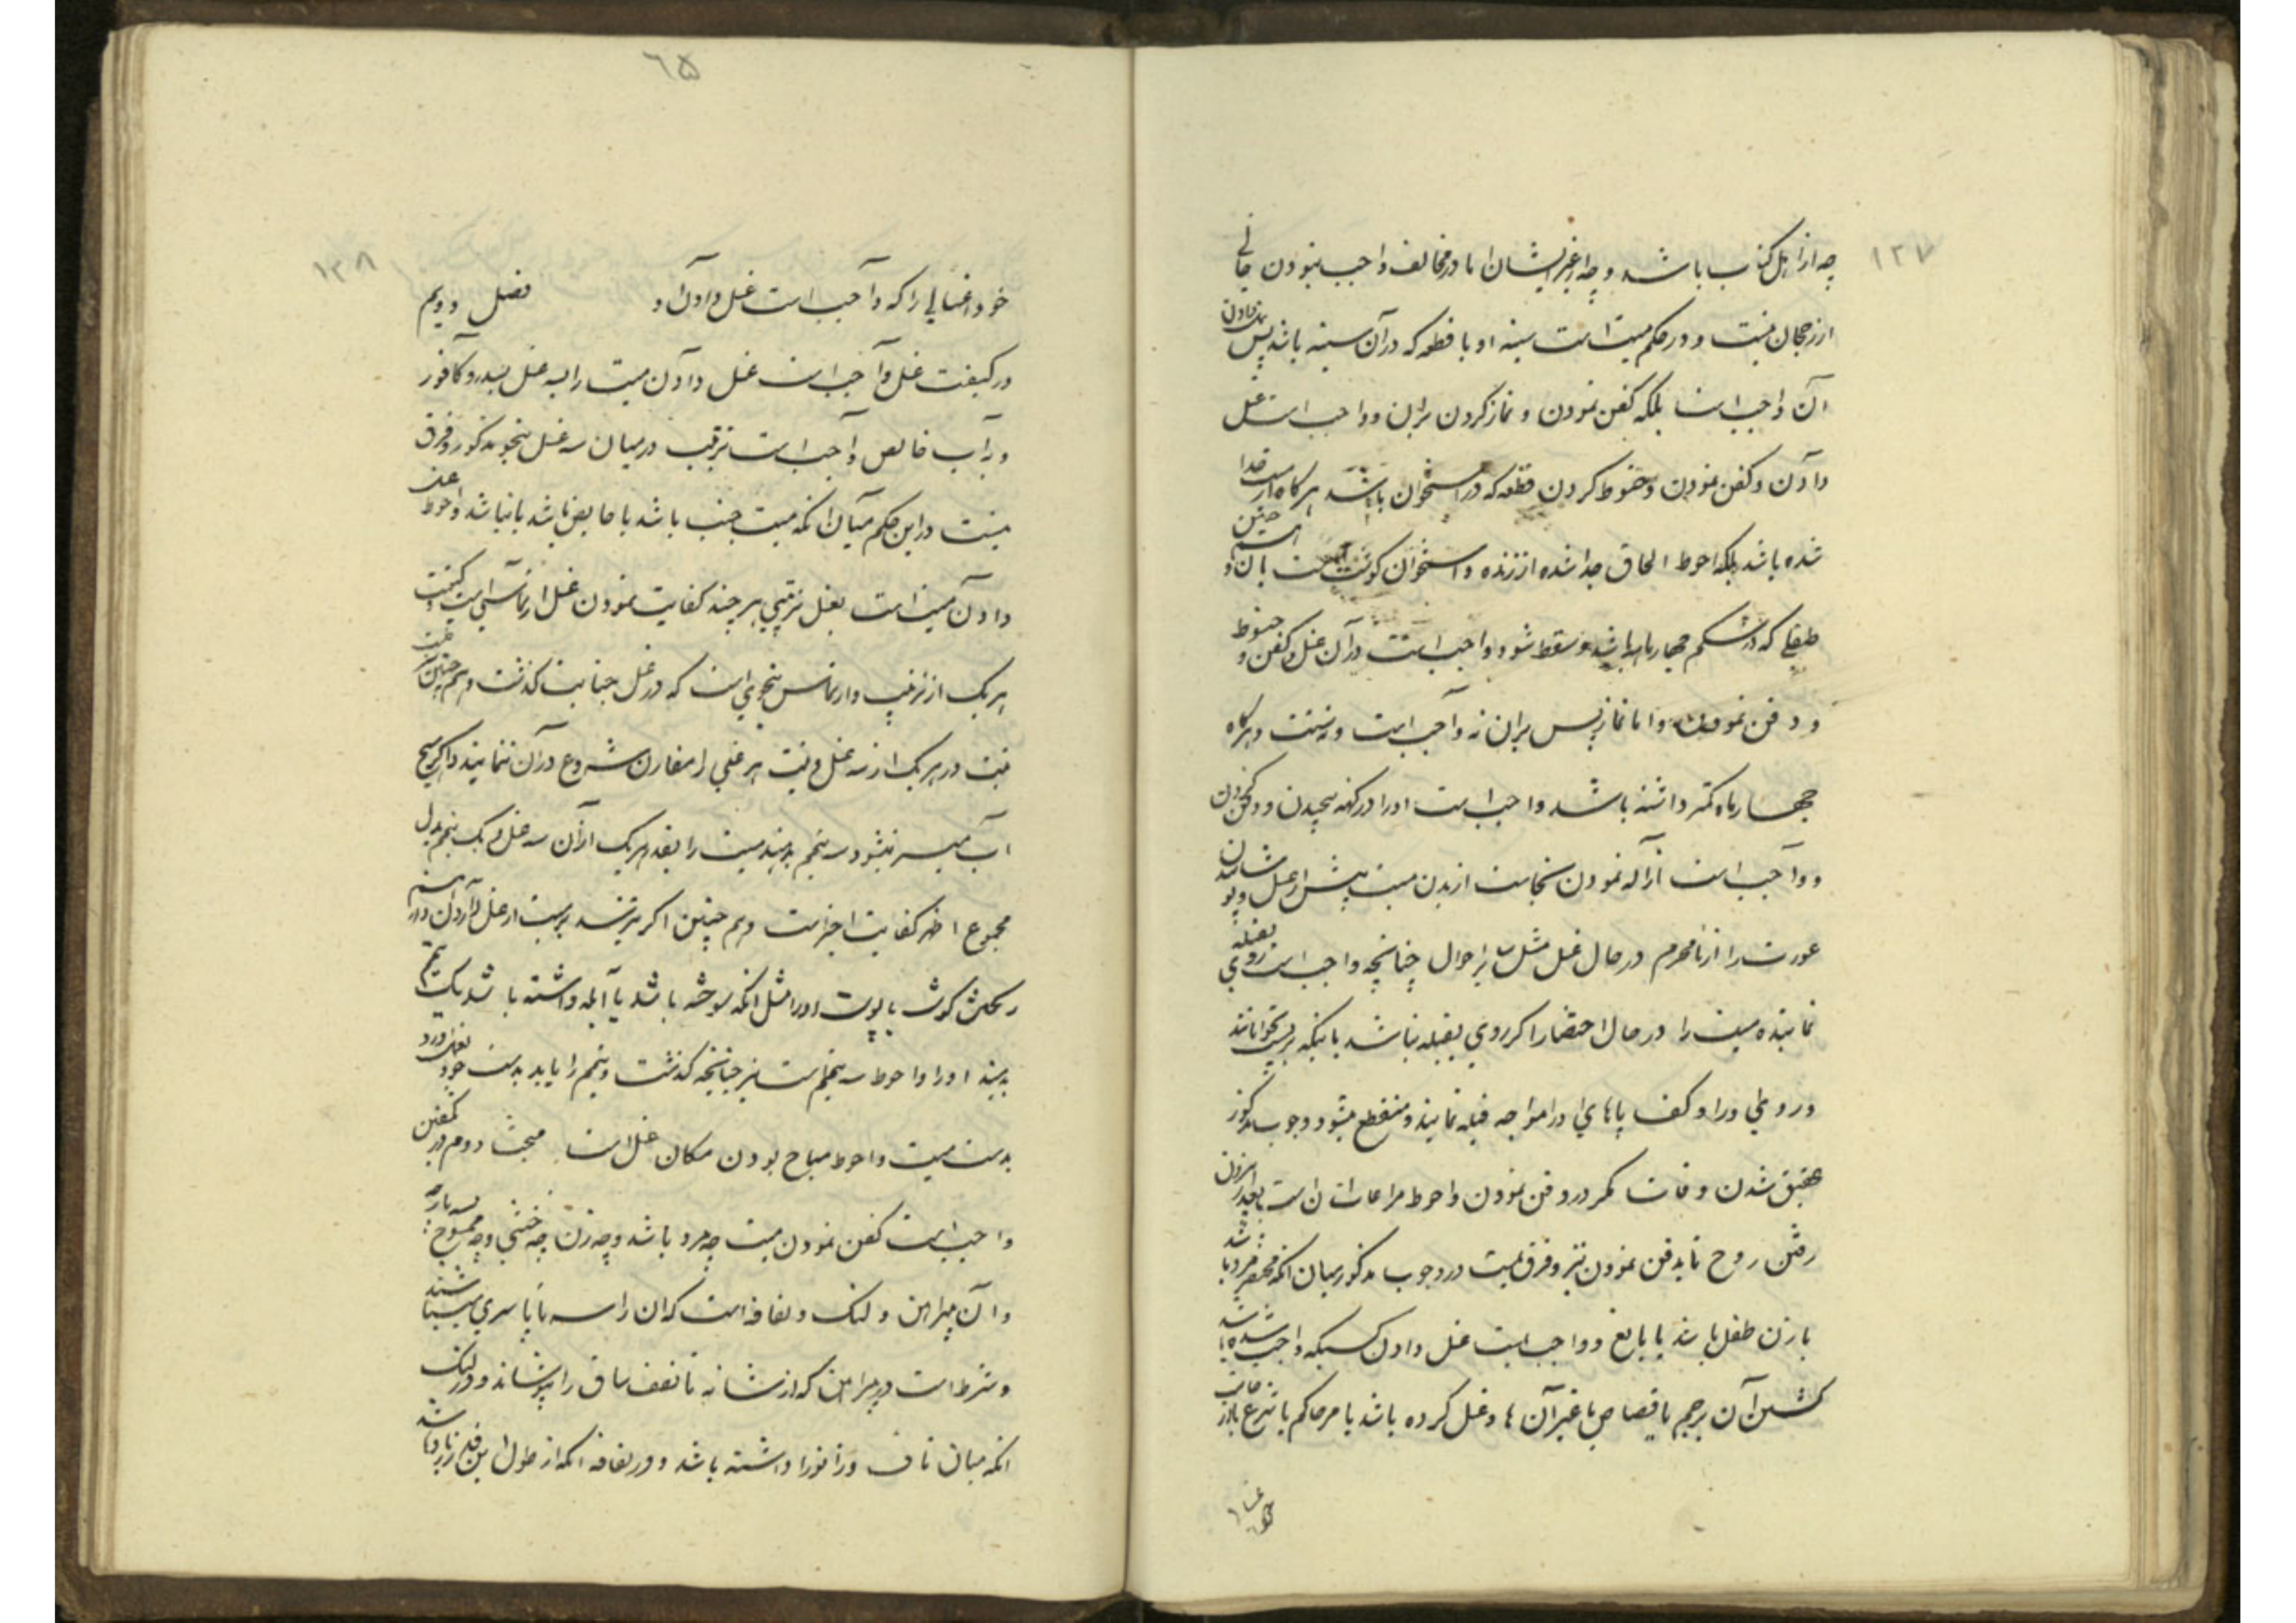 ١٢٧
چه از اهل کتاب باشد و چه از غیر ایشان اما در مخالف واجب نبودن خالی
از رجحان نیست و در حکم میت است سینه او یا قطعه که در آن سینه باشد پس
آن واجب است بلکه کفن نمودن و نماز کردن بر آن و واجب است غسل
دادن و کفن نمودن و حنوط کردن قطعه که در استخوان باشد هرگاه از میت جدا
شده باشد بلکه احوط الحاق جدا شده از زنده و استخوان است بآن و
طفلی که در شکم چهار ماه باشد و سقط شود واجب است در آن غسل و کفن و حنوط
و دفن نمودن و اما نماز پس بر آن نه واجب است و نه سنت و هرگاه
چهار ماه کمتر داشته باشد واجب است او را در کهنه پیچیدن و دفن کردن
و واجب است ازاله نمودن نجاست از بدن میت پیش از غسل و پوشانیدن
عورت را از نامحرم در حال غسل مثل سایر احوال چنانچه واجب است روی بقبله
نماینده میت را در حال احتضار اگر روی بقبله نباشد باینکه بر پشت بخوابانند
و روی او را و کف پاهای او را مواجه قبله نمایند و منقطع میشود وجوب مذکور
بمحقق شدن وفات مگر در دفن نمودن و احوط مراعات آن است بعد از بیرون
رفتن روح تا بدفن نمودن نیز و فرق نیست در وجوب مذکور میان آنکه محتضر مرد باشد
یا زن طفل باشد یا بالغ و واجب است غسل دادن کسیکه واجب شده باشد
کشتن آن برجم یا قصاص یا غیر آن ها و غسل کرده باشد بامر حاکم شرع
٦٥
١٢٨
خود اغسالی را که واجب است غسل دادن او فصل دویم
در کیفیت غسل واجب است غسل دادن میت را بسه غسل بسدر و کافور
و بآب خالص واجب است ترتیب در میان سه غسل بنحو مذکور و فرق
نیست در این حکم میان آنکه میت جنب باشد یا حایض باشد یا نباشد و احوط غسل
دادن میت است بغسل ترتیبی هر چند کفایت نمودن غسل ارتماسی و کیفیت
هر یک از ترتیب و ارتماس بنحوی است که در غسل جنابت گذشت و هم چنین
نیت در هر یک از سه غسل و نیت هر غسلی را مقارن شروع در آن نمایند و اگر هیچ
آب میسر نشود سه تیمم بدهند میت را بقصد هر یک از آن سه غسل و یک تیمم بدل
مجموع اظهر کفایت اخیر است و هم چنین اگر بترسند بر میت از غسل دادن
ریختن گوشت یا پوست او را مثل آنکه سوخته باشد یا آبله داشته باشد یک تیمم
بدهند او را و احوط سه تیمم است نیز چنانچه گذشت و تیمم را باید بدست خود
بدست میت و احوط مباح بودن مکان غسل است مبحث دوم در تکفین
واجب است کفن نمودن میت چه مرد باشد و چه زن چه خنثی و چه ممسوح بسه پارچه
و آن پیراهن و لنگ و لفافه است که آن را سرتاسری مینامند
و شرط است در پیراهن که از شانه تا نصف ساق را بپوشاند و در لنگ
آنکه میان ناف و زانو را داشته باشد و در لفافه آنکه از طول این قدر زیاد باشد